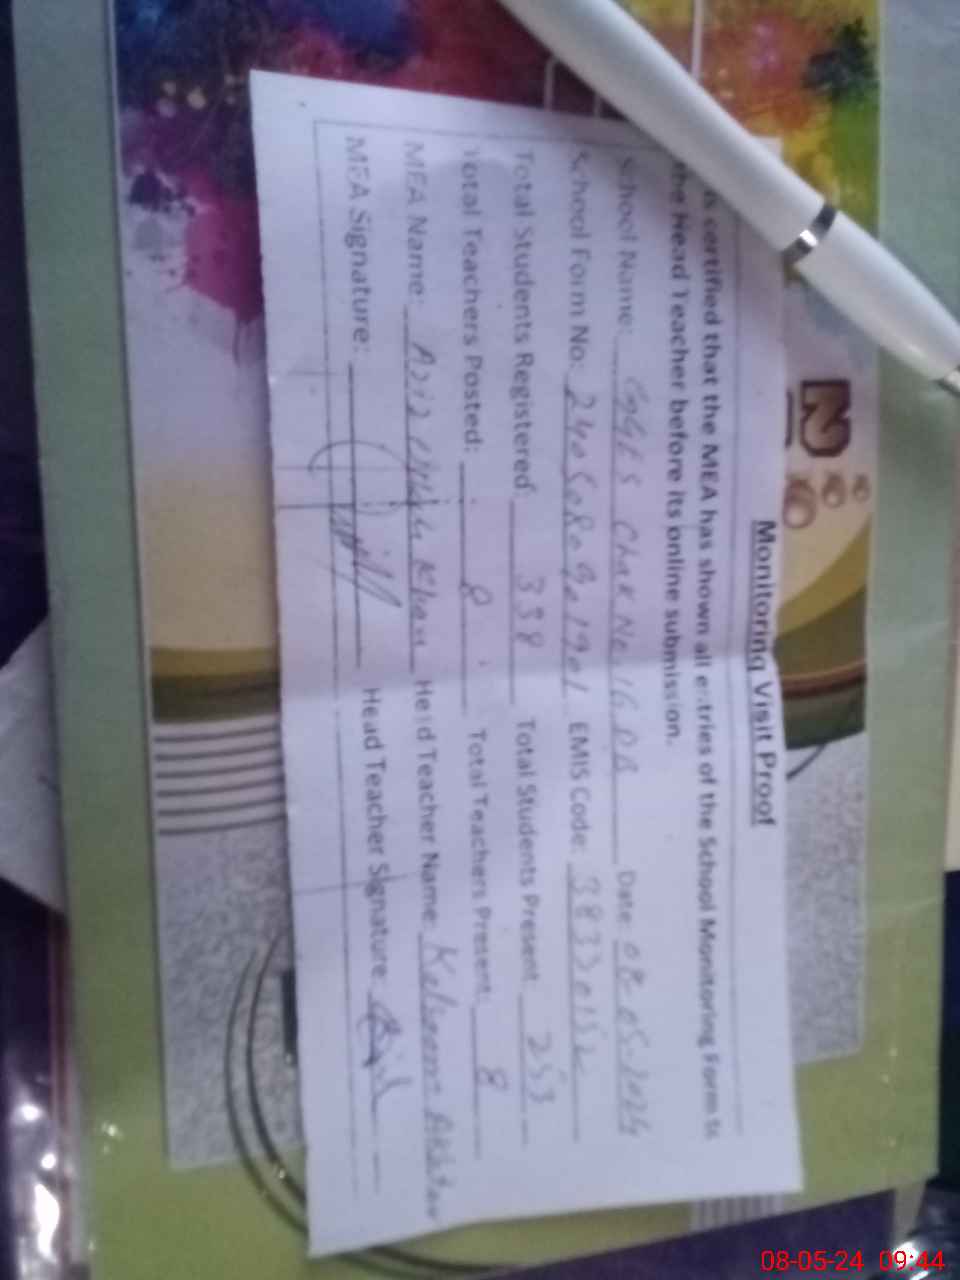 Monitoring Visit Proof
is certified that the MEA has shown all entries of the School Monitoring Form to
the Head Teacher before its online submission.
School Name: GGES Chak No. 16 DB Date: 08.05.2024
School Form No: 2405080901901 EMIS Code: 38330152
Total Students Registered: 338 Total Students Present: 253
Total Teachers Posted: 8 Total Teachers Present: 8
MEA Name: Aziz Ullah Khan Head Teacher Name: Kalsoom Akhtar
MEA Signature: Head Teacher Signature:
08-05-24 09:44